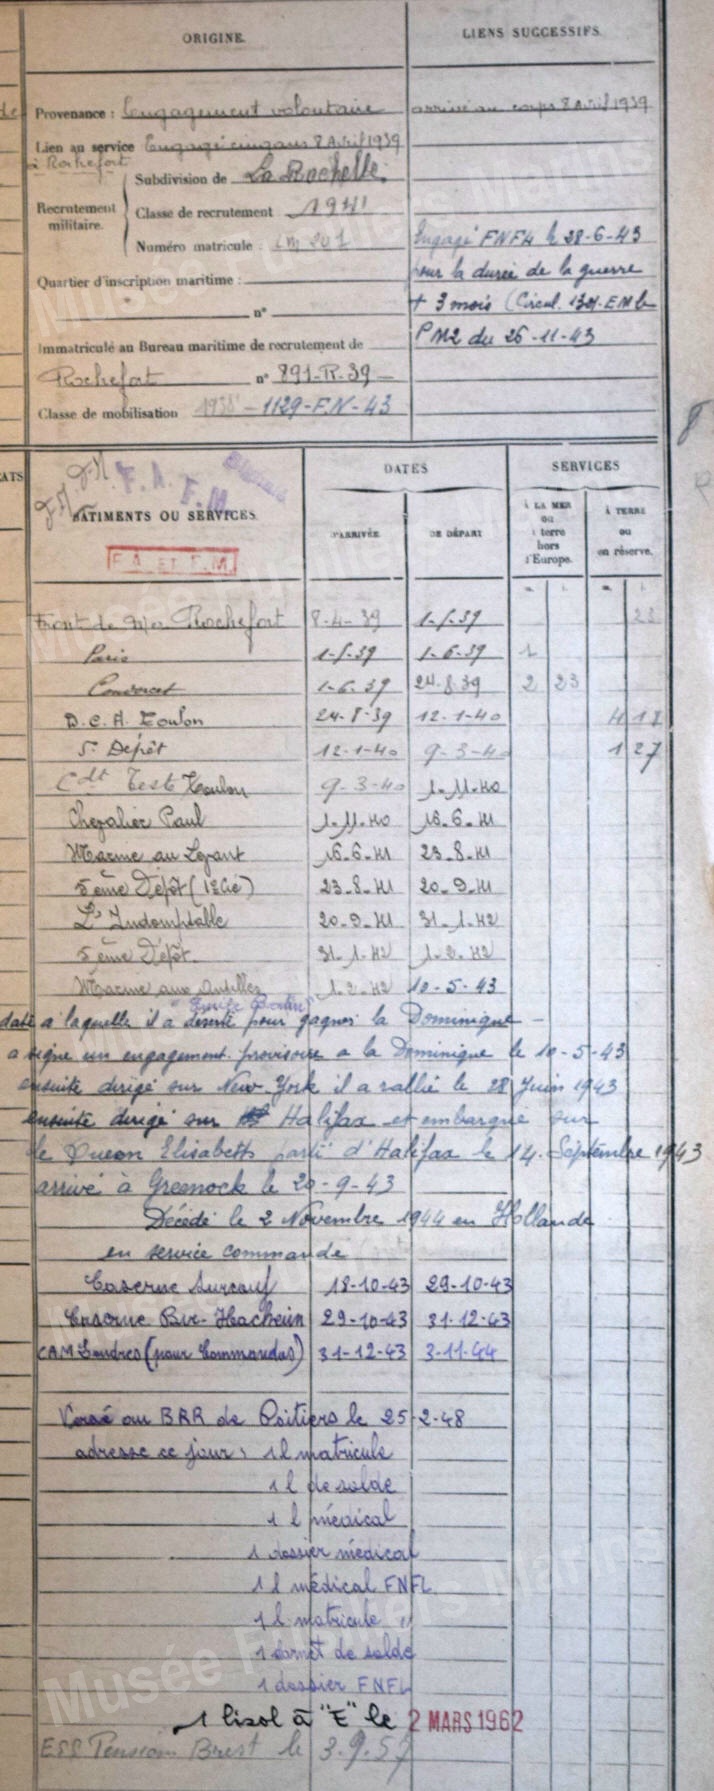 ORIGINE
LIENS SUCCESSIFS
Provenance : Engagement volontaire
arrivé au corps 8 Avril 1939
Lien au service Engagé cinq ans 8 Avril 1939
à Rochefort
Subdivision de La Rochelle
Recrutement militaire.
Classe de recrutement 1941
Numéro matricule : LM 201
Engagé FNFL le 28-6-43
pour la durée de la guerre
+ 3 mois (Circul. EM
PM2 du 26-11-43
Quartier d'inscription maritime :
n°
Immatriculé au Bureau maritime de recrutement de
Rochefort n° 891-R-39
Classe de mobilisation 1938 - 1129-F.N-43
ATS
F.A. F.M
BATIMENTS OU SERVICES
F.A. ET F.M.
DATES
D'ARRIVÉE
DE DÉPART
SERVICES
À LA MER
ou
à terre
hors
d'Europe.
À TERRE
ou
en réserve.
Front de Mer Rochefort 8-4-39 1-5-39 23
Paris 1-5-39 1-6-39 1
Condorcet 1-6-39 24-8-39 2 23
D.C.A. Toulon 24-8-39 12-1-40 4 18
5e Dépôt 12-1-40 9-3-40 1 27
Cdt Teste Toulon 9-3-40 1-11-40
Chevalier Paul 1-11-40 16-6-41
Marine au Levant 16-6-41 23-8-41
5ème Dépôt (1e Cie) 23-8-41 20-9-41
L'Indomptable 20-9-41 31-1-42
5ème Dépôt 31-1-42 1-2-42
Marine aux Antilles 1-2-42 10-5-43
"Emile Bertin"
date à laquelle il a déserté pour gagner la Dominique -
a signé un engagement provisoire à la Dominique le 10-5-43
ensuite dirigé sur New-York il a rallié le 28 Juin 1943
ensuite dirigé sur Halifax et embarqué sur
le Queen Elisabeth parti d'Halifax le 14 Septembre 1943
arrivé à Greenock le 20-9-43
Décédé le 2 Novembre 1944 en Hollande
en service commandé
Caserne Surcouf 18-10-43 29-10-43
Caserne Bir-Hacheim 29-10-43 31-12-43
CAM Londres (pour Commandos) 31-12-43 3-11-44
Versé au BRR de Poitiers le 25-2-48
adressé ce jour : 1 l matricule
1 l de solde
1 l médical
1 dossier médical
1 l médical FNFL
1 l matricule "
1 carnet de solde
1 dossier FNFL
1 lisol à "E" le 2 MARS 1962
Pension Brest le 3.9.57
Musée Fusiliers Marins